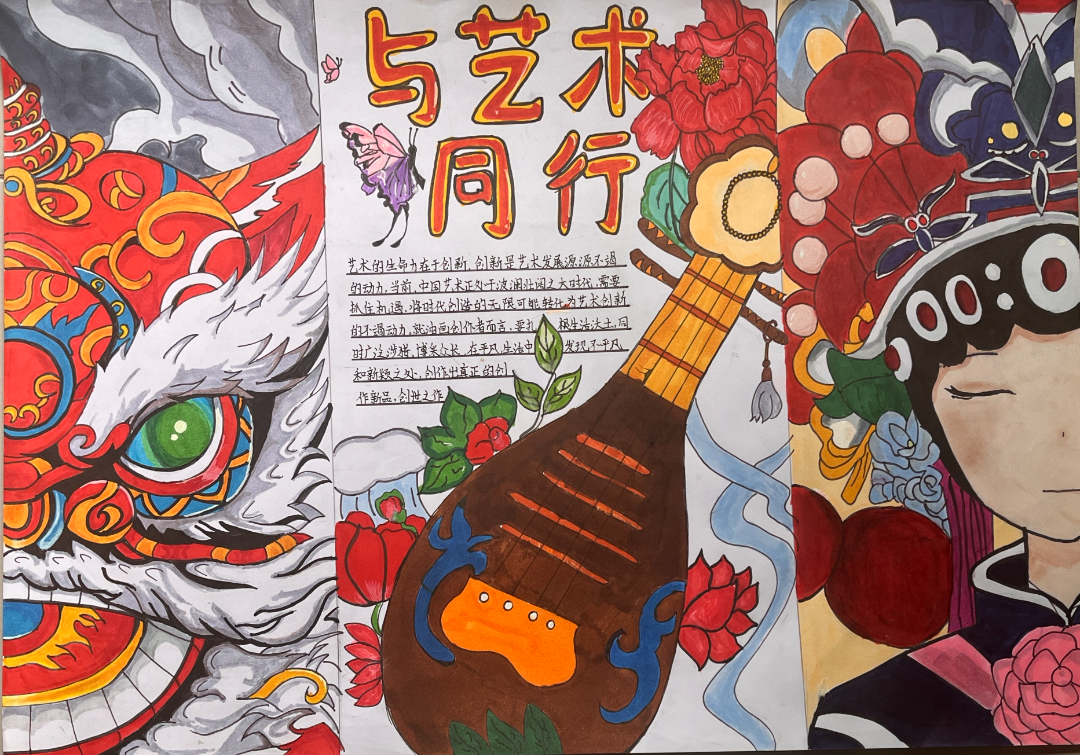 与艺术
同行
艺术的生命力在于创新,创新是艺术发展源源不退
的动力。当前,中国艺术正处于波澜壮阔之大时代,需要
抓住机遇,将时代创造的无限可能转化为艺术创新
的不遏动力。就油画创作者而言,要扎 根生活沃土,同
时广泛涉猎,博采众长,在平凡生活中 发现不平凡
和新颖之处,创作出真正的创
作新品、创世之作